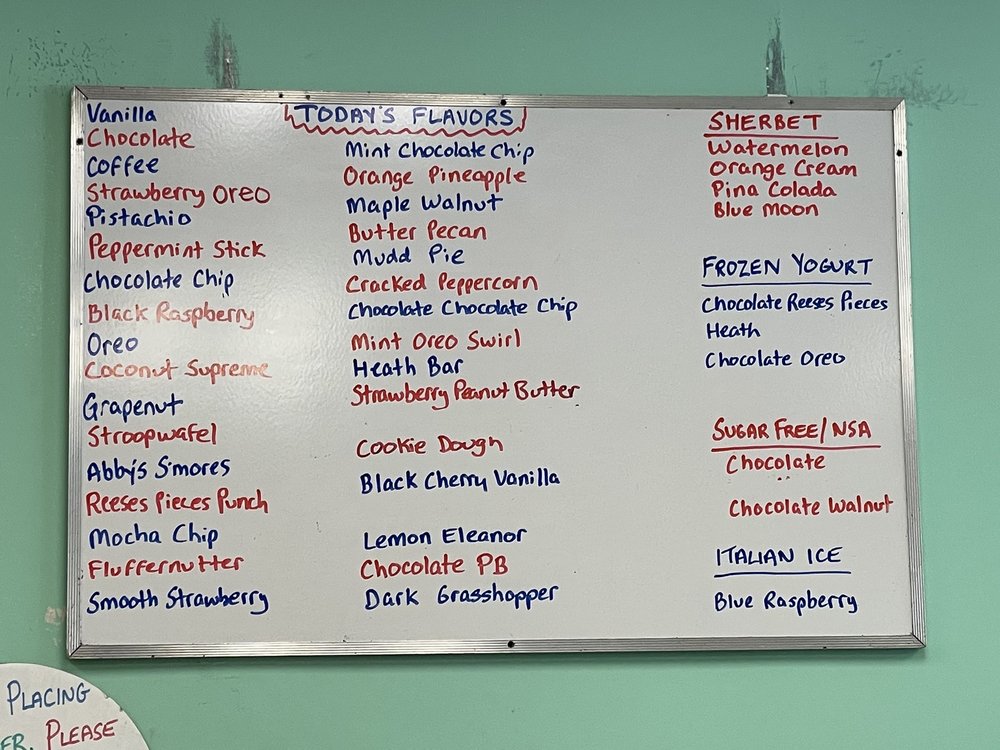 TODAY'S FLAVORS
Vanilla
Chocolate
Coffee
Strawberry Oreo
Pistachio
Peppermint Stick
Chocolate Chip
Black Raspberry
Oreo
Coconut Supreme
Grapenut
Stroopwafel
Abby's S'mores
Reeses Pieces Punch
Mocha Chip
Fluffernutter
Smooth Strawberry
Mint Chocolate Chip
Orange Pineapple
Maple Walnut
Butter Pecan
Mudd Pie
Cracked Peppercorn
Chocolate Chocolate Chip
Mint Oreo Swirl
Heath Bar
Strawberry Peanut Butter
Cookie Dough
Black Cherry Vanilla
Lemon Eleanor
Chocolate PB
Dark Grasshopper
SHERBET
Watermelon
Orange Cream
Pina Colada
Blue Moon
FROZEN YOGURT
Chocolate Reeses Pieces
Heath
Chocolate Oreo
SUGAR FREE/NSA
Chocolate
Chocolate Walnut
ITALIAN ICE
Blue Raspberry
PLACING
ER. PLEASE